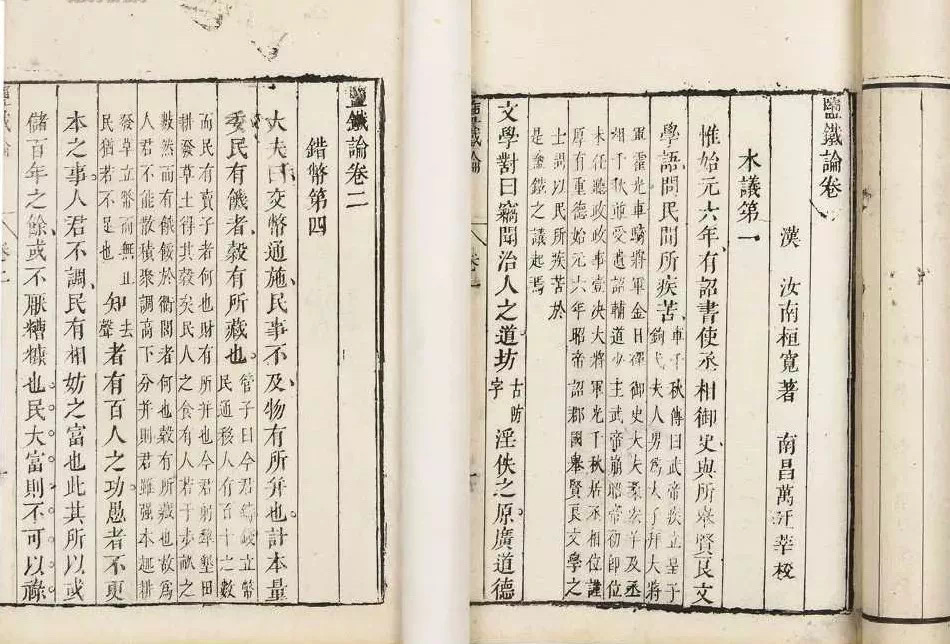 鹽鐵論卷
漢 汝南桓寬著 南昌萬 校
本議第一
惟始元六年有詔書使丞相御史與所舉賢良文
學語問民間所疾苦 車千秋傳曰武帝疾立皇子
鉤弋夫人男為太子拜大將
軍霍光車騎將軍金日磾御史大夫桑弘羊及丞
相千秋並受遺詔輔道少主武帝崩昭帝初即位
未任聽政政事壹決大將軍光千秋居丞相位謹
厚有重德始元六年昭帝詔郡國舉賢良文學之
士問以民所疾苦於
是鹽鐵之議起焉
文學對曰竊聞治人之道坊 古防字 淫佚之原廣道德
鹽鐵論
鹽鐵論卷二
錯幣第四
大夫曰交幣通施民事不及物有所并也計本量
委民有饑者穀有所藏也 管子曰今君鑄錢立幣
民通移人有百十之數
而民有賣子者何也財有所并也今君躬犂墾田
耕發草土得其穀矣民人之食有人若干步畝之
數然而有餓餒於衢閭者何也穀有所藏也故為
人君不能散積聚調高下分并則君雖强本趣耕
發草立幣而無止
民猶若不足也
知 去聲 者有百人之功愚者不更
本之事人君不調民有相妨之富也此其所以或
儲百年之餘或不厭糟糠也民大富則不可以祿
鹽鐵論 卷二